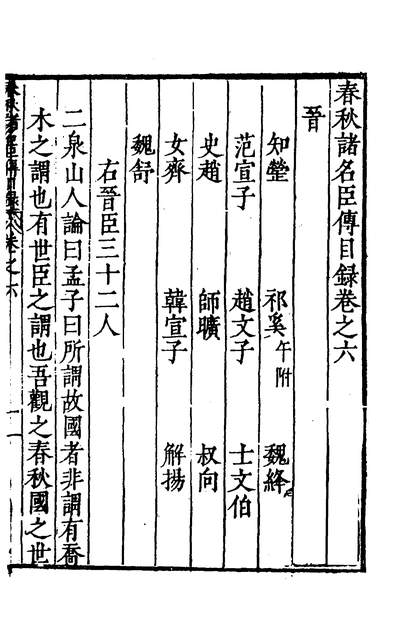 春秋諸名臣傳目録卷之六
晉
知罃　祁奚午附　魏絳
范宣子　趙文子　士文伯
史趙　師曠　叔向
女齊　韓宣子　解揚
魏舒
右晉臣三十二人
二泉山人論曰孟子曰所謂故國者非謂有喬
木之謂也有世臣之謂也吾觀之春秋國之世
春秋諸名臣傳目錄卷之六